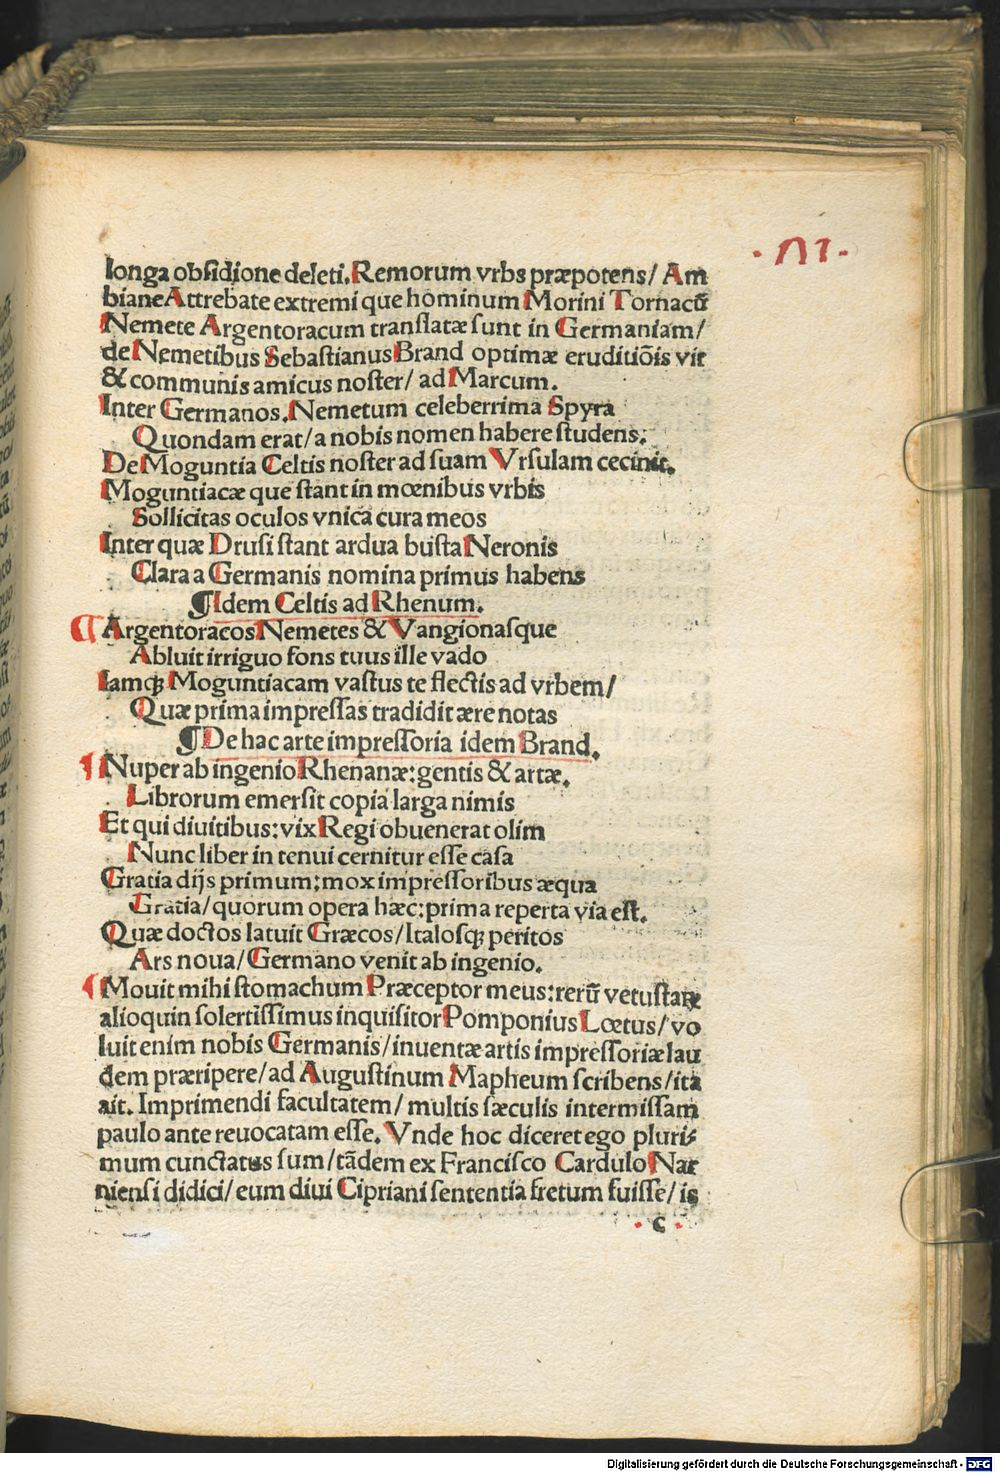 ·VII·
longa obsidione deleti. Remorum vrbs præpotens/ Am
biane Attrebate extremi que hominum Morini Tornacū
Nemete Argentoracum translatæ sunt in Germaniam/
de Nemetibus Sebastianus Brand optimæ eruditiōis vir
& communis amicus noster/ ad Marcum.
Inter Germanos. Nemetum celeberrima Spyra
Quondam erat/ a nobis nomen habere studens.
De Moguntia Celtis noster ad suam Vrsulam cecinit.
Moguntiacæ que stant in mœnibus vrbis
Sollicitas oculos vnica cura meos
Inter quæ Drusi stant ardua busta Neronis
Clara a Germanis nomina primus habens
¶ Idem Celtis ad Rhenum.
¶ Argentoracos Nemetes & Vangionasque
Abluit irriguo fons tuus ille vado
Iamqꝫ Moguntiacam vastus te flectis ad vrbem/
Quæ prima impressas tradidit ære notas
¶ De hac arte impressoria idem Brand.
¶ Nuper ab ingenio Rhenanæ: gentis & artæ.
Librorum emersit copia larga nimis
Et qui diuitibus: vix Regi obuenerat olim
Nunc liber in tenui cernitur esse casa
Gratia dijs primum: mox impressoribus æqua
Gratia/ quorum opera hæc: prima reperta via est.
Quæ doctos latuit Græcos/ Italosqꝫ peritos
Ars noua/ Germano venit ab ingenio.
¶ Mouit mihi stomachum Præceptor meus: rerū vetustarꝫ
alioquin solertissimus inquisitor Pomponius Lœtus/ vo
luit enim nobis Germanis/ inuentæ artis impressoriæ lau
dem præripere/ ad Augustinum Mapheum scribens/ ita
ait. Imprimendi facultatem/ multis sæculis intermissam
paulo ante reuocatam esse. Vnde hoc diceret ego pluri⸗
mum cunctatus sum/ tādem ex Francisco Cardulo Nar
niensi didici/ eum diui Cipriani sententia fretum fuisse/ is
·c·
Digitalisierung gefördert durch die Deutsche Forschungsgemeinschaft - DFG